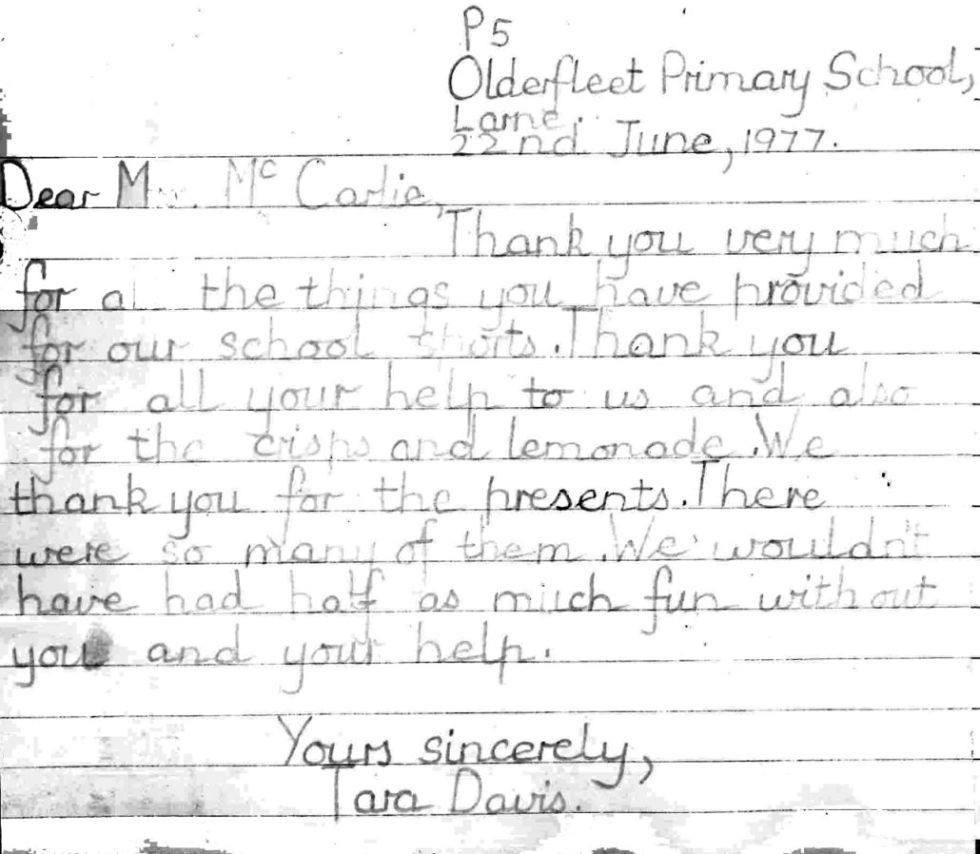 P5
Olderfleet Primary School,
Larne.
22nd June, 1977.
Dear Mc Carlie,
Thank you very much
for all the things you have provided
for our school. Thank you
for all your help to us and also
for the crisps and lemonade. We
thank you for the presents. There
were so many of them. We wouldn't
have had half as much fun without
you and your help.
Yours sincerely,
Tara Davis.